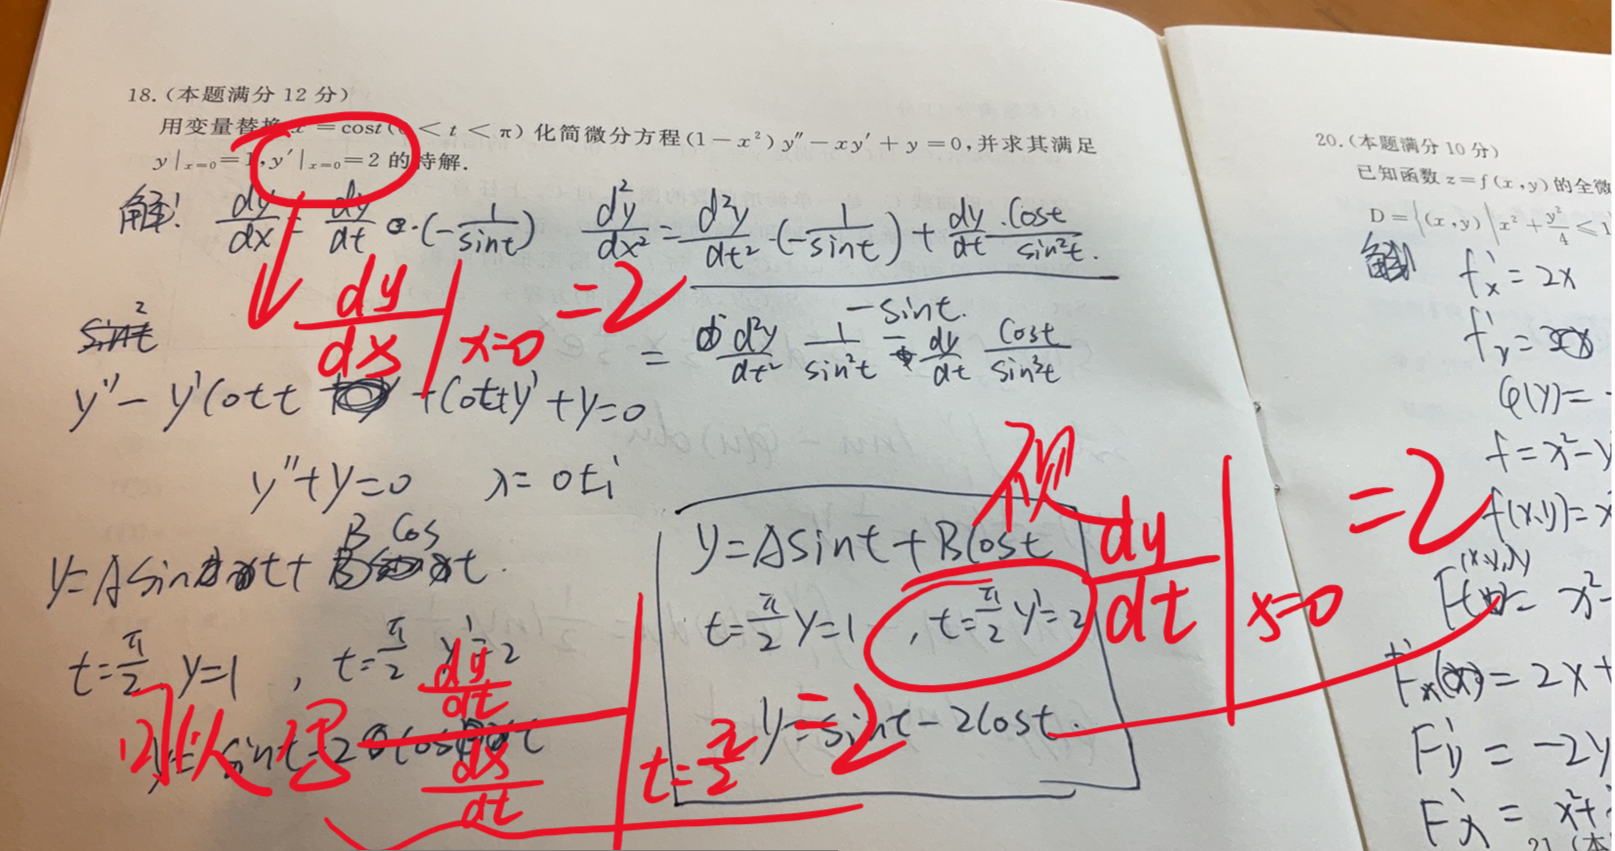 18.(本题满分 12 分)
用变量替换 x = cost(0 < t < π) 化简微分方程(1-x²)y″-xy′+y=0,并求其满足
y|ₓ₌₀=1,y′|ₓ₌₀=2 的特解.
解: dy/dx = dy/dt ·(-1/sint) d²y/dx² = (d²y/dt²·(-1/sint) + dy/dt·cost/sin²t)/(-sint)
dy/dx|x=0 =2
= d²y/dt² 1/sin²t - dy/dt cost/sin³t
y″- y′cott + cott y′ + y=0
y″+y=0 λ= 0±i
B cos
y=Asin t + t.
t=π/2 y=1 , t=π/2 y′=2
y= sint-2cos t
dy/dt / dx/dt | t=π/2 =2
y=Asint+Bcost
t=π/2 y=1 , t=π/2 y′=2
y=sint-2cost.
dy/dt|x=0 =2
20.(本题满分 10 分)
已知函数 z=f(x,y)的全微
D={(x,y)|x²+y²/4≤1
解
f′x=2x
f′y=
φ(y)=-
f=x²-y
f(x,y)=x
(x,y,λ)
F = x²-
F′x = 2x+
F′y = -2y
F′λ = x²+
21.(本